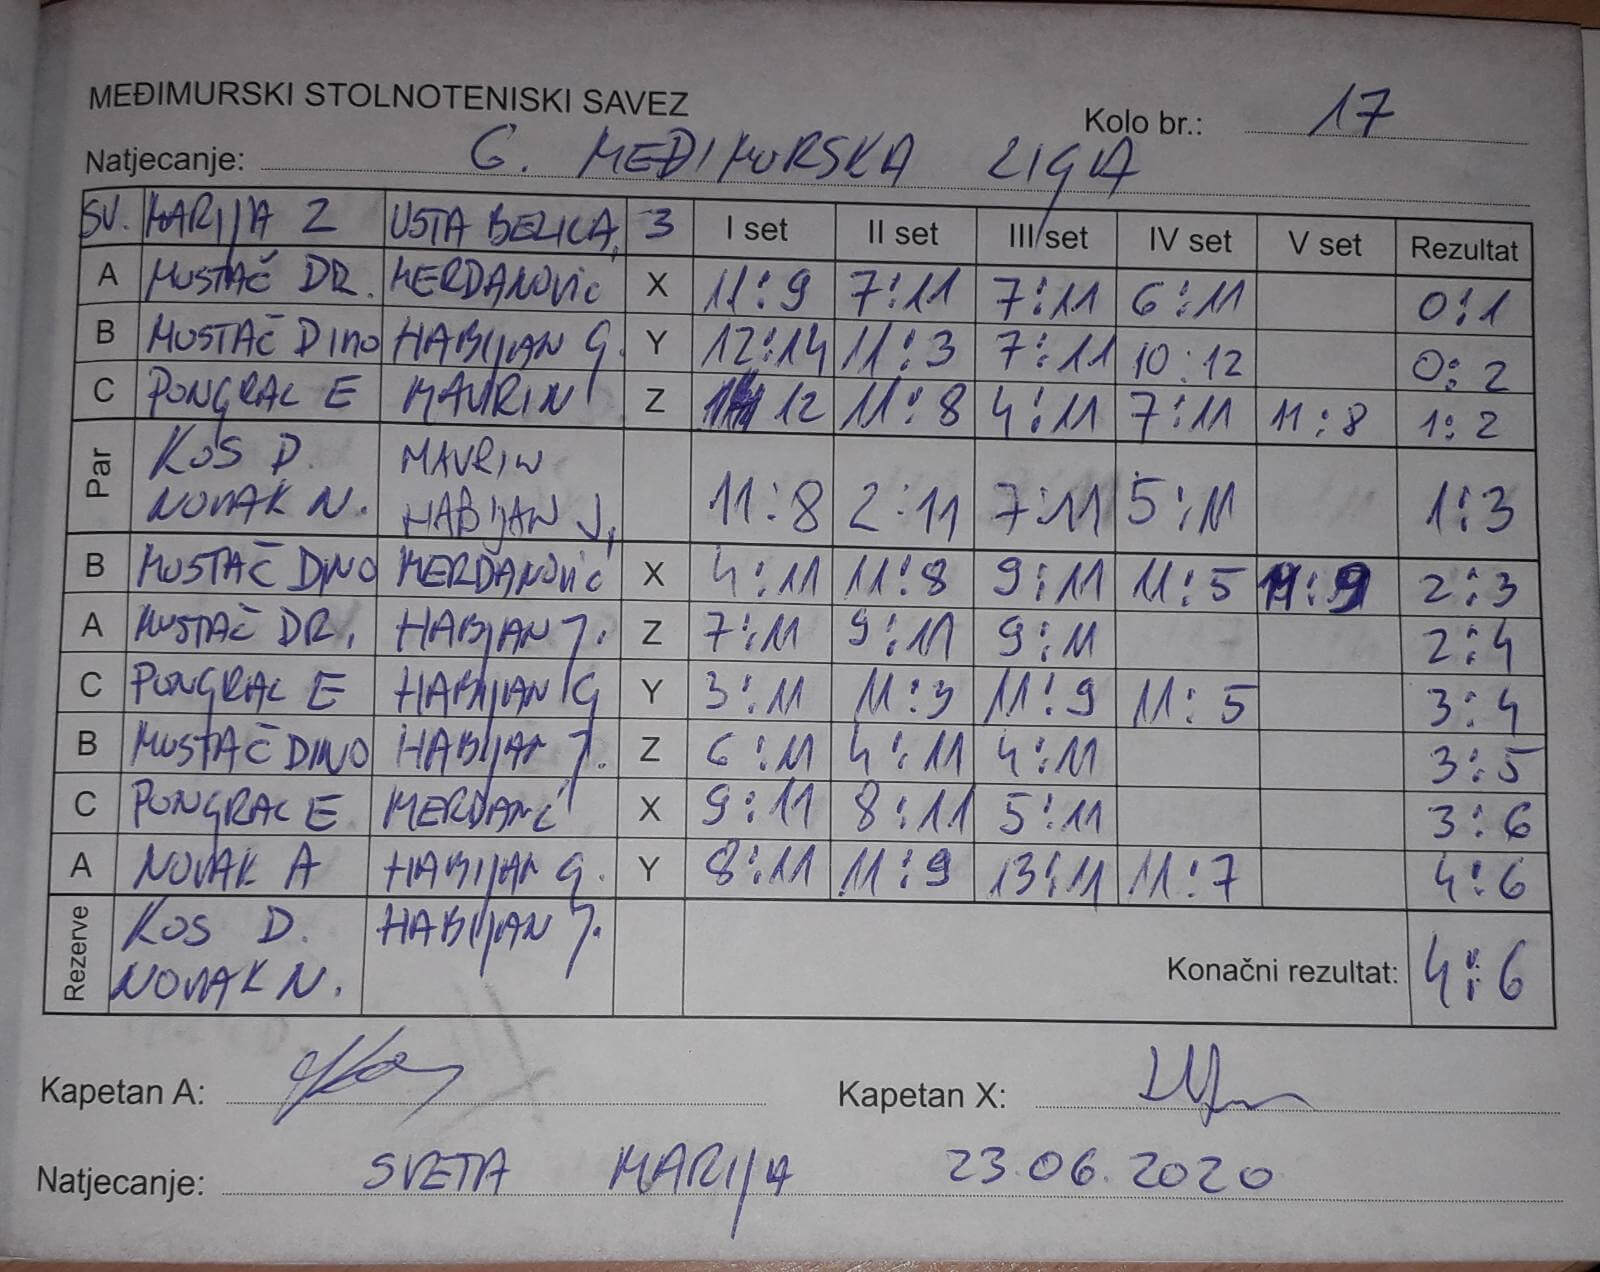 MEĐIMURSKI STOLNOTENISKI SAVEZ
Kolo br.: 17
Natjecanje: 6. MEĐIMURSKA LIGA
SV. MARIJA 2 USTA BELICA, 3 I set II set III set IV set V set Rezultat
A MUSTAČ DR. MERDANOVIĆ X 11:9 7:11 7:11 6:11 0:1
B MUSTAČ DINO HABIJAN G. Y 12:14 11:3 7:11 10:12 0:2
C PONGRAC E MAVRIN Z 12 11:8 4:11 7:11 11:8 1:2
Par KOS D. MAVRIN
NOVAK N. HABIJAN J. 11:8 2:11 7:11 5:11 1:3
B MUSTAČ DINO MERDANOVIĆ X 4:11 11:8 9:11 11:5 11:9 2:3
A MUSTAČ DR. HABIJAN J. Z 7:11 9:11 9:11 2:4
C PONGRAC E HABIJAN G Y 3:11 11:3 11:9 11:5 3:4
B MUSTAČ DINO HABIJAN J. Z 6:11 4:11 4:11 3:5
C PONGRAC E MERDANĆ X 9:11 8:11 5:11 3:6
A NOVAK A HABIJAN G. Y 8:11 11:9 13:11 11:7 4:6
Rezerve KOS D. HABIJAN J.
NOVAK N. Konačni rezultat: 4:6
Kapetan A: Kapetan X:
Natjecanje: SVETA MARIJA 23.06.2020